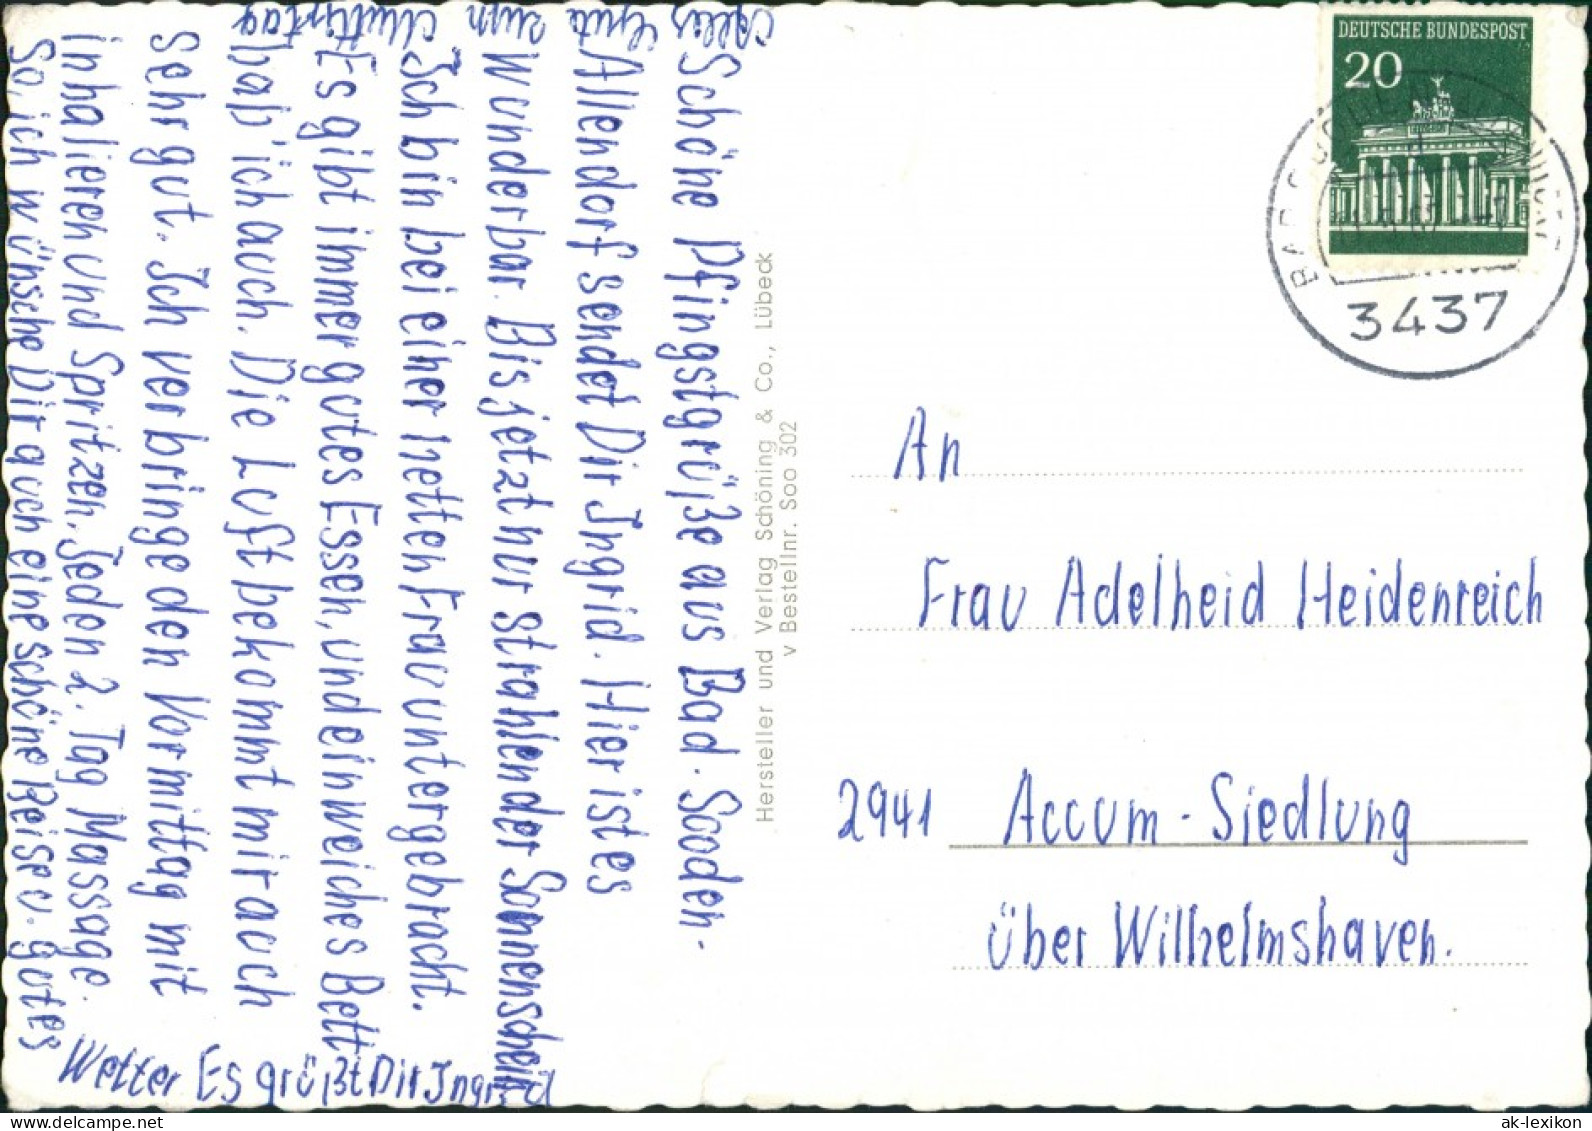 Alles Gute zum Muttertag
Schöne Pfingstgrüße aus Bad-Sooden-
Allendorf sendet Dir Ingrid. Hier ist es
wunderbar. Bis jetzt nur strahlender Sonnenschein
Ich bin bei einer netten Frau untergebracht.
Es gibt immer gutes Essen, und ein weiches Bett
hab' ich auch. Die Luft bekommt mir auch
sehr gut. Ich verbringe den Vormittag mit
inhalieren und Spritzen. Jeden 2. Tag Massage.
So, ich wünsche Dir auch eine schöne Reise u. gutes
Wetter Es grüßt Dir Ingrid
Hersteller und Verlag Schöning & Co., Lübeck
v Bestellnr. Soo 302
DEUTSCHE BUNDESPOST
20
3437
An
Frau Adelheid Heidenreich
2941 Accum-Siedlung
über Wilhelmshaven.
ak-lexikon.de